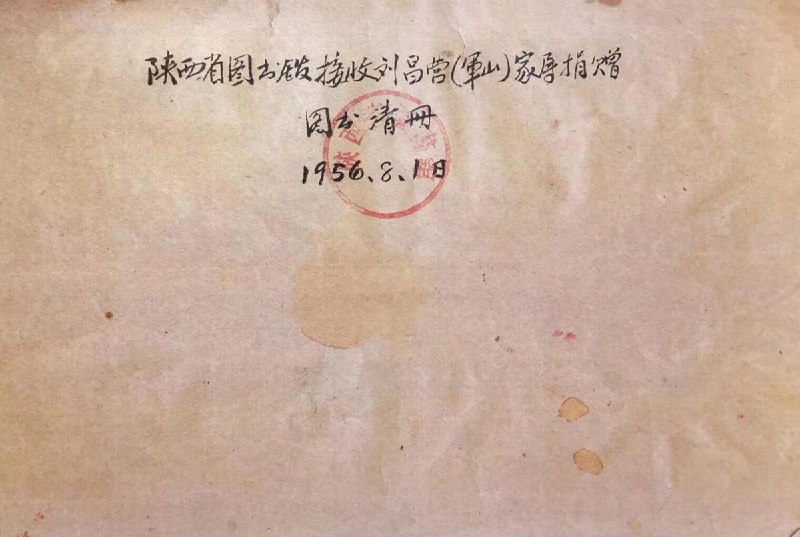 陕西省图书馆接收刘昌营(軍山)家属捐赠
图书清册
1956.8.1日